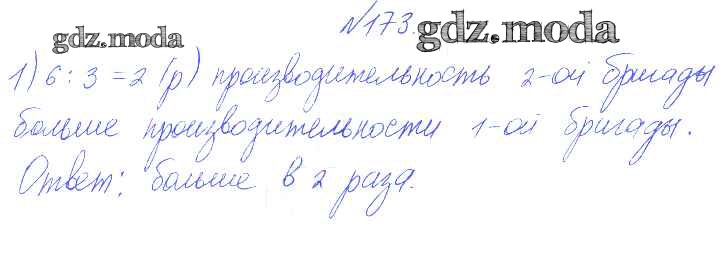 №173. gdz.moda
gdz.moda
1) 6 : 3 = 2 (р) производительность 2-ой бригады
больше производительности 1-ой бригады.
Ответ: больше в 2 раза.